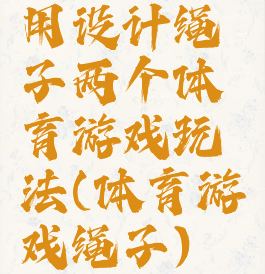 用设计绳
子两个体
育游戏玩
法(体育游
戏绳子)